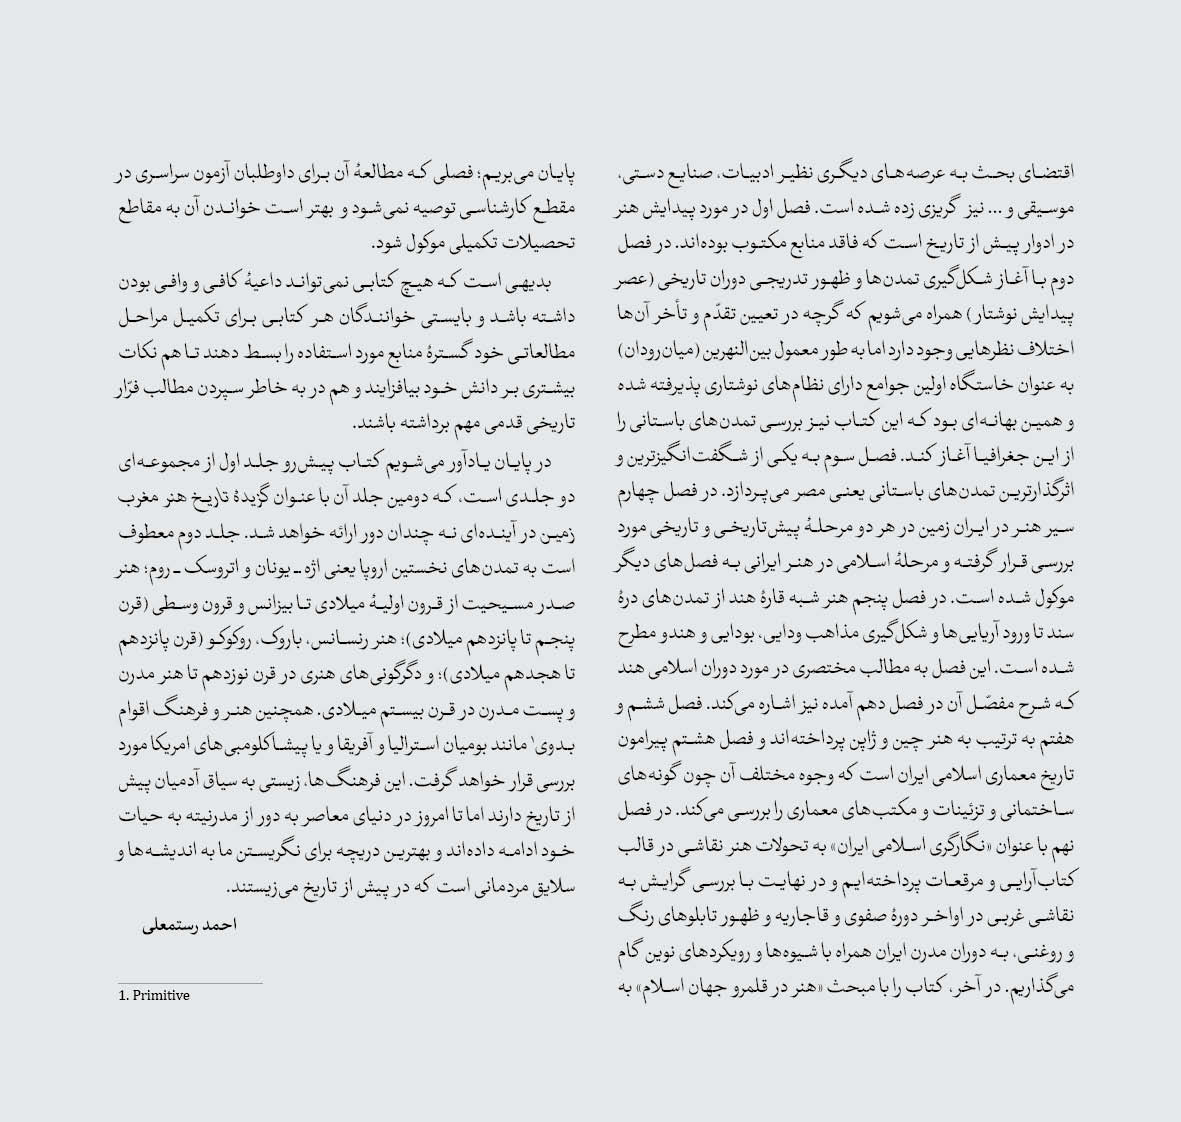 اقتضای بحث به عرصه‌های دیگری نظیر ادبیات، صنایع دستی،
موسیقی و ... نیز گریزی زده شده است. فصل اول در مورد پیدایش هنر
در ادوار پیش از تاریخ است که فاقد منابع مکتوب بوده‌اند. در فصل
دوم با آغاز شکل‌گیری تمدن‌ها و ظهور تدریجی دوران تاریخی (عصر
پیدایش نوشتار) همراه می‌شویم که گرچه در تعیین تقدّم و تأخر آن‌ها
اختلاف نظرهایی وجود دارد اما به طور معمول بین‌النهرین (میان‌رودان)
به عنوان خاستگاه اولین جوامع دارای نظام‌های نوشتاری پذیرفته شده
و همین بهانه‌ای بود که این کتاب نیز بررسی تمدن‌های باستانی را
از این جغرافیا آغاز کند. فصل سوم به یکی از شگفت‌انگیزترین و
اثرگذارترین تمدن‌های باستانی یعنی مصر می‌پردازد. در فصل چهارم
سیر هنر در ایران زمین در هر دو مرحلهٔ پیش‌تاریخی و تاریخی مورد
بررسی قرار گرفته و مرحلهٔ اسلامی در هنر ایرانی به فصل‌های دیگر
موکول شده است. در فصل پنجم هنر شبه قارهٔ هند از تمدن‌های درهٔ
سند تا ورود آریایی‌ها و شکل‌گیری مذاهب ودایی، بودایی و هندو مطرح
شده است. این فصل به مطالب مختصری در مورد دوران اسلامی هند
که شرح مفصّل آن در فصل دهم آمده نیز اشاره می‌کند. فصل ششم و
هفتم به ترتیب به هنر چین و ژاپن پرداخته‌اند و فصل هشتم پیرامون
تاریخ معماری اسلامی ایران است که وجوه مختلف آن چون گونه‌های
ساختمانی و تزئینات و مکتب‌های معماری را بررسی می‌کند. در فصل
نهم با عنوان «نگارگری اسلامی ایران» به تحولات هنر نقاشی در قالب
کتاب‌آرایی و مرقعات پرداخته‌ایم و در نهایت با بررسی گرایش به
نقاشی غربی در اواخر دورهٔ صفوی و قاجاریه و ظهور تابلوهای رنگ
و روغنی، به دوران مدرن ایران همراه با شیوه‌ها و رویکردهای نوین گام
می‌گذاریم. در آخر، کتاب را با مبحث «هنر در قلمرو جهان اسلام» به
پایان می‌بریم؛ فصلی که مطالعهٔ آن برای داوطلبان آزمون سراسری در
مقطع کارشناسی توصیه نمی‌شود و بهتر است خواندن آن به مقاطع
تحصیلات تکمیلی موکول شود.
بدیهی است که هیچ کتابی نمی‌تواند داعیهٔ کافی و وافی بودن
داشته باشد و بایستی خوانندگان هر کتابی برای تکمیل مراحل
مطالعاتی خود گسترهٔ منابع مورد استفاده را بسط دهند تا هم نکات
بیشتری بر دانش خود بیافزایند و هم در به خاطر سپردن مطالب فرّار
تاریخی قدمی مهم برداشته باشند.
در پایان یادآور می‌شویم کتاب پیش‌رو جلد اول از مجموعه‌ای
دو جلدی است، که دومین جلد آن با عنوان گزیدهٔ تاریخ هنر مغرب
زمین در آینده‌ای نه چندان دور ارائه خواهد شد. جلد دوم معطوف
است به تمدن‌های نخستین اروپا یعنی اژه ـ یونان و اتروسک ـ روم؛ هنر
صدر مسیحیت از قرون اولیهٔ میلادی تا بیزانس و قرون وسطی (قرن
پنجم تا پانزدهم میلادی)؛ هنر رنسانس، باروک، روکوکو (قرن پانزدهم
تا هجدهم میلادی)؛ و دگرگونی‌های هنری در قرن نوزدهم تا هنر مدرن
و پست مدرن در قرن بیستم میلادی. همچنین هنر و فرهنگ اقوام
بدوی¹ مانند بومیان استرالیا و آفریقا و یا پیشاکلومبی‌های امریکا مورد
بررسی قرار خواهد گرفت. این فرهنگ‌ها، زیستی به سیاق آدمیان پیش
از تاریخ دارند اما تا امروز در دنیای معاصر به دور از مدرنیته به حیات
خود ادامه داده‌اند و بهترین دریچه برای نگریستن ما به اندیشه‌ها و
سلایق مردمانی است که در پیش از تاریخ می‌زیستند.
احمد رستمعلی
1. Primitive